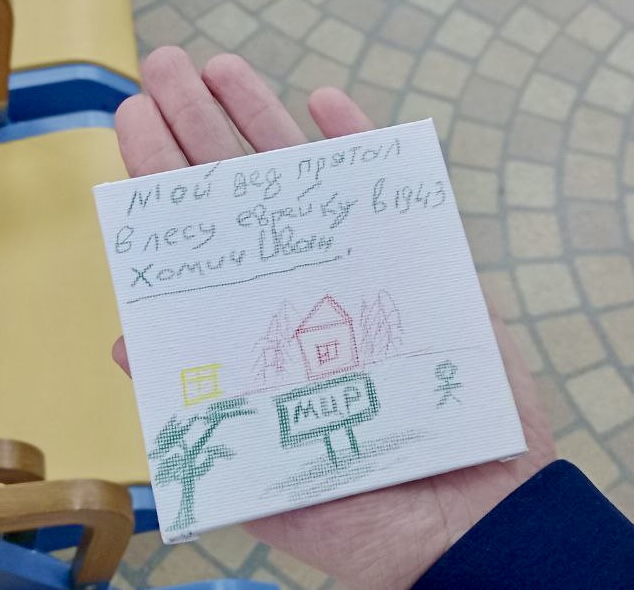 Мой дед прятал
в лесу еврейку в 1943
Хомич Иван.
МИР